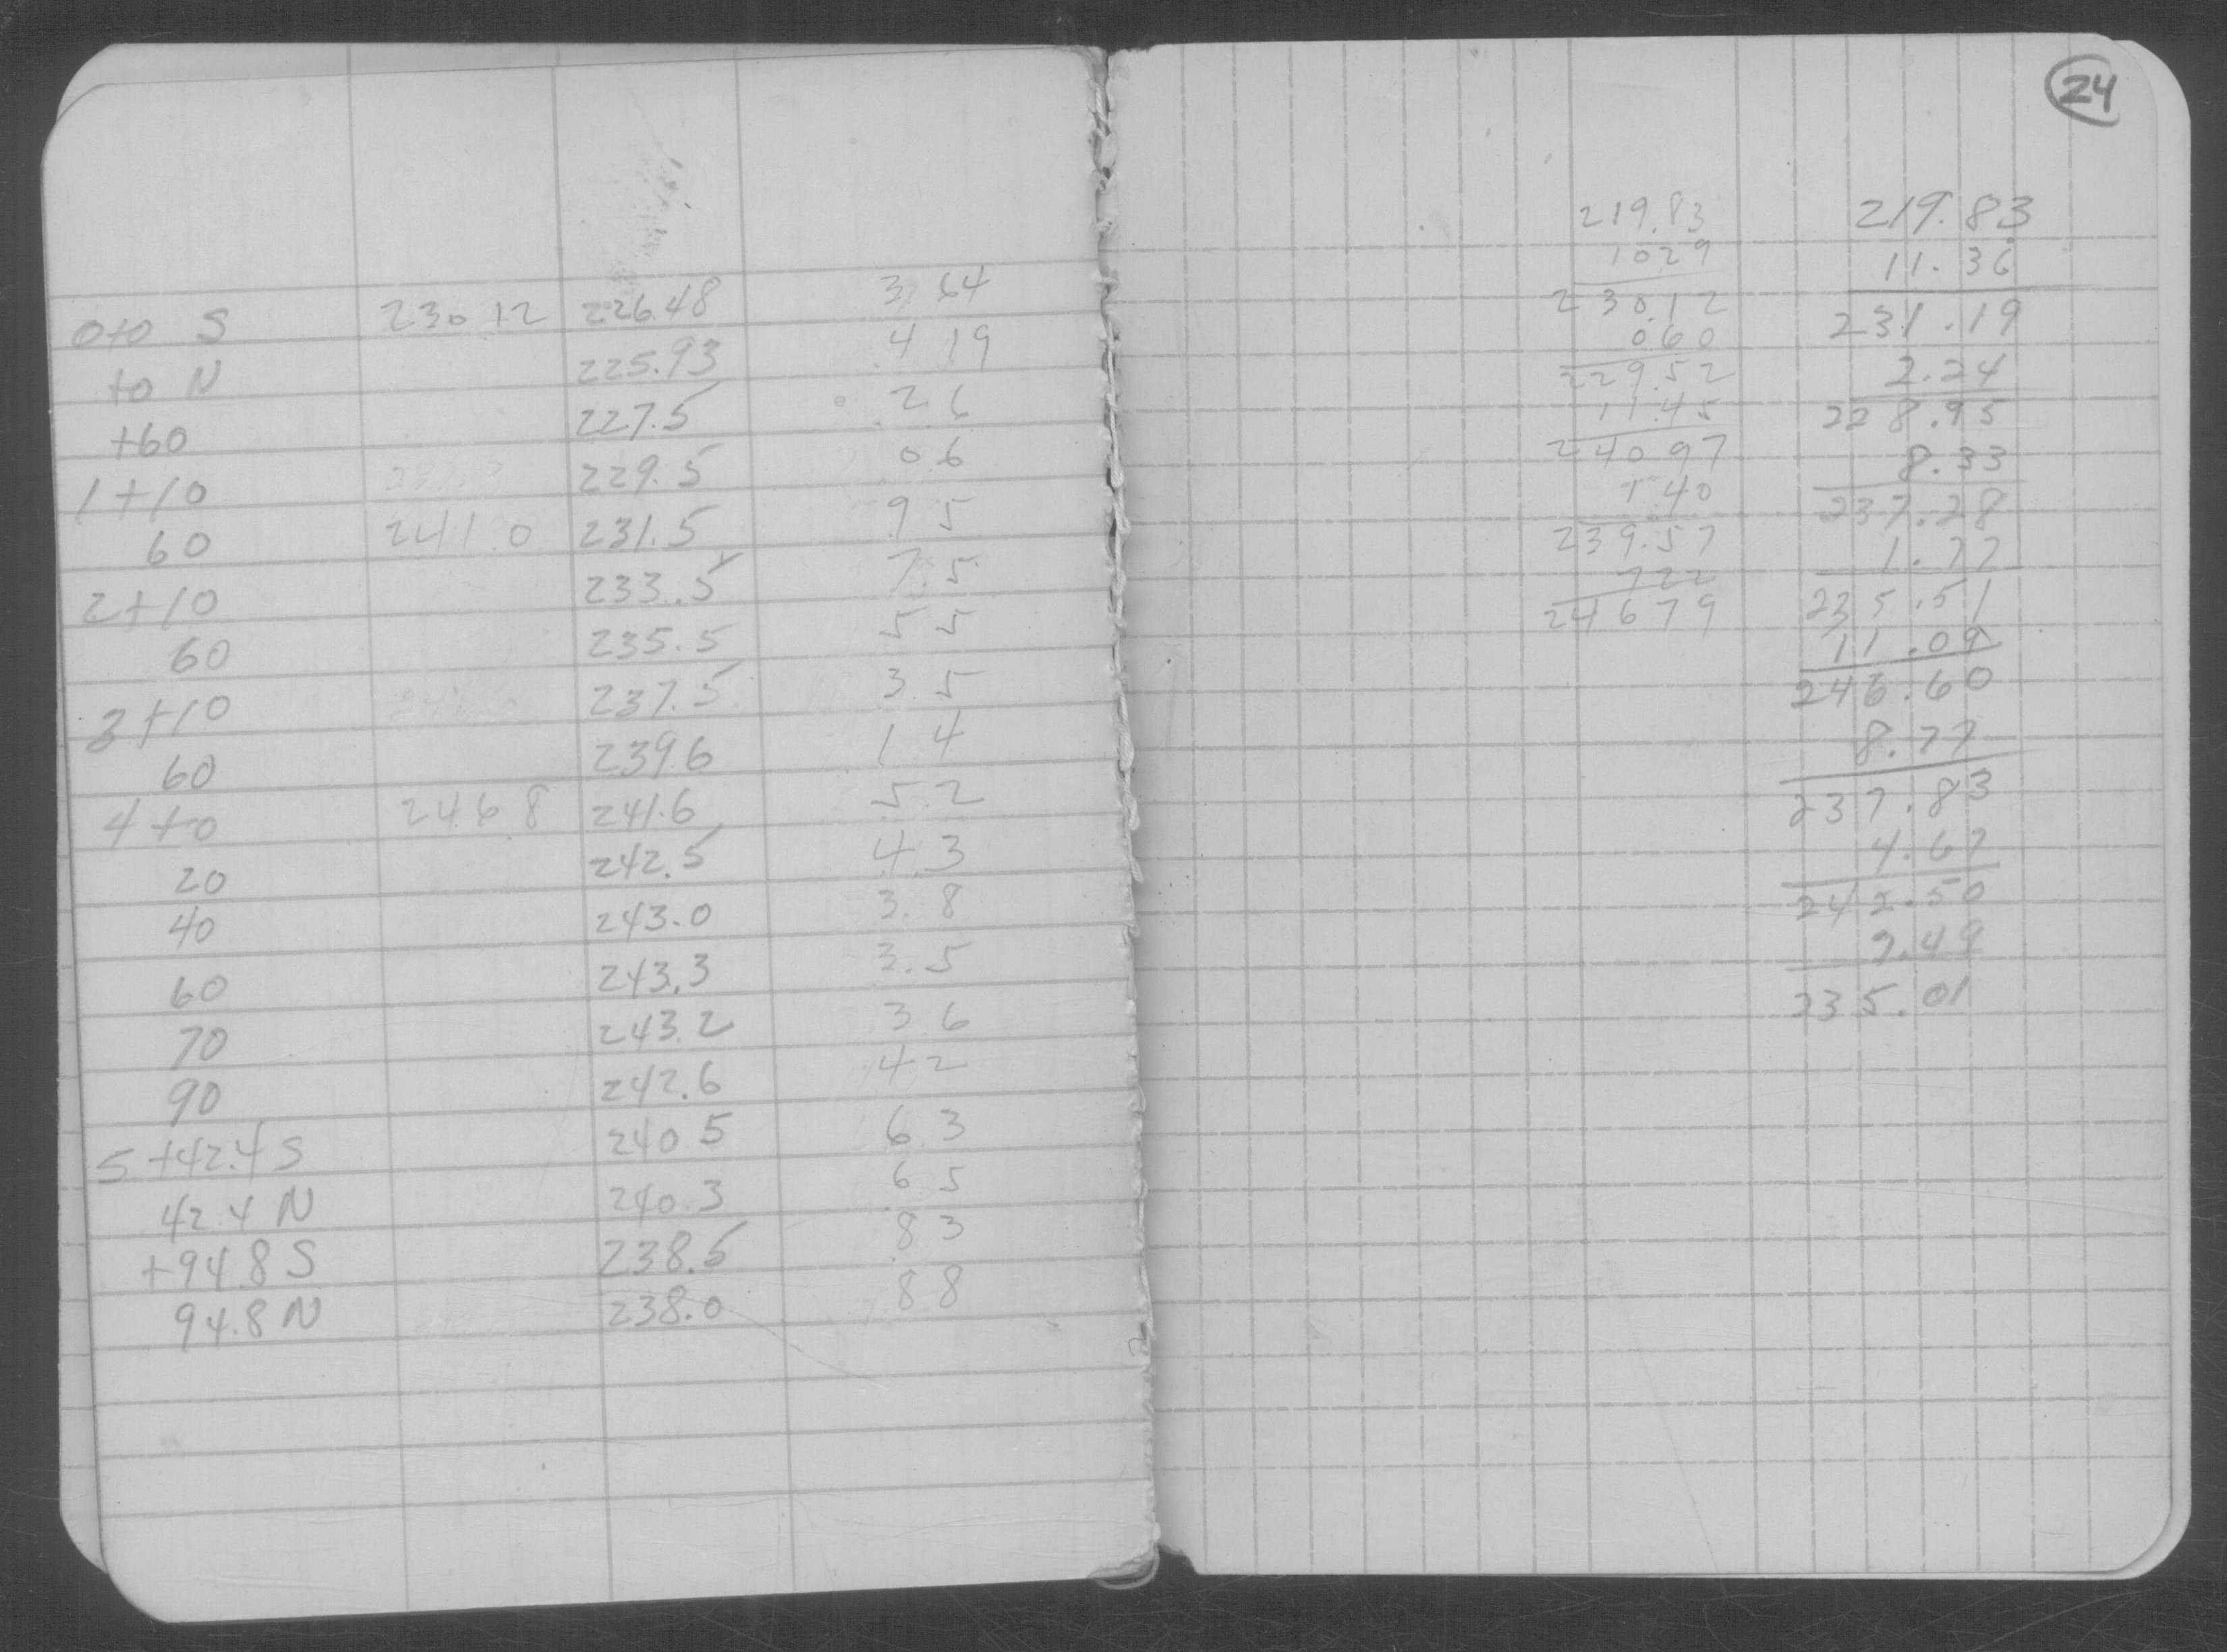 0+0 S 230 12 226.48 3 64
+0 N 225.93 4 19
+60 227.5 2.6
1+10 229.5 0 6
60 241.0 231.5 9 5
2+10 233.5 7.5
60 235.5 5 5
3+10 237.5 3 5
60 239.6 1 4
4+0 246 8 241.6 5 2
20 242.5 4 3
40 243.0 3. 8
60 243.3 3.5
70 243.2 3 6
90 242.6 4 2
5+42.4 S 240 5 6 3
42.4 N 240.3 6 5
+94.8 S 238.5 8 3
94.8 N 238.0 8 8
24
219.83
1029
230.12
060
229.52
11.45
240 97
1 40
239.57
722
246 79
219.83
11.36
231.19
2.24
228.95
8.33
237.28
1.77
235.51
11.09
246.60
8.77
237.83
4.67
242.50
7.49
235.01